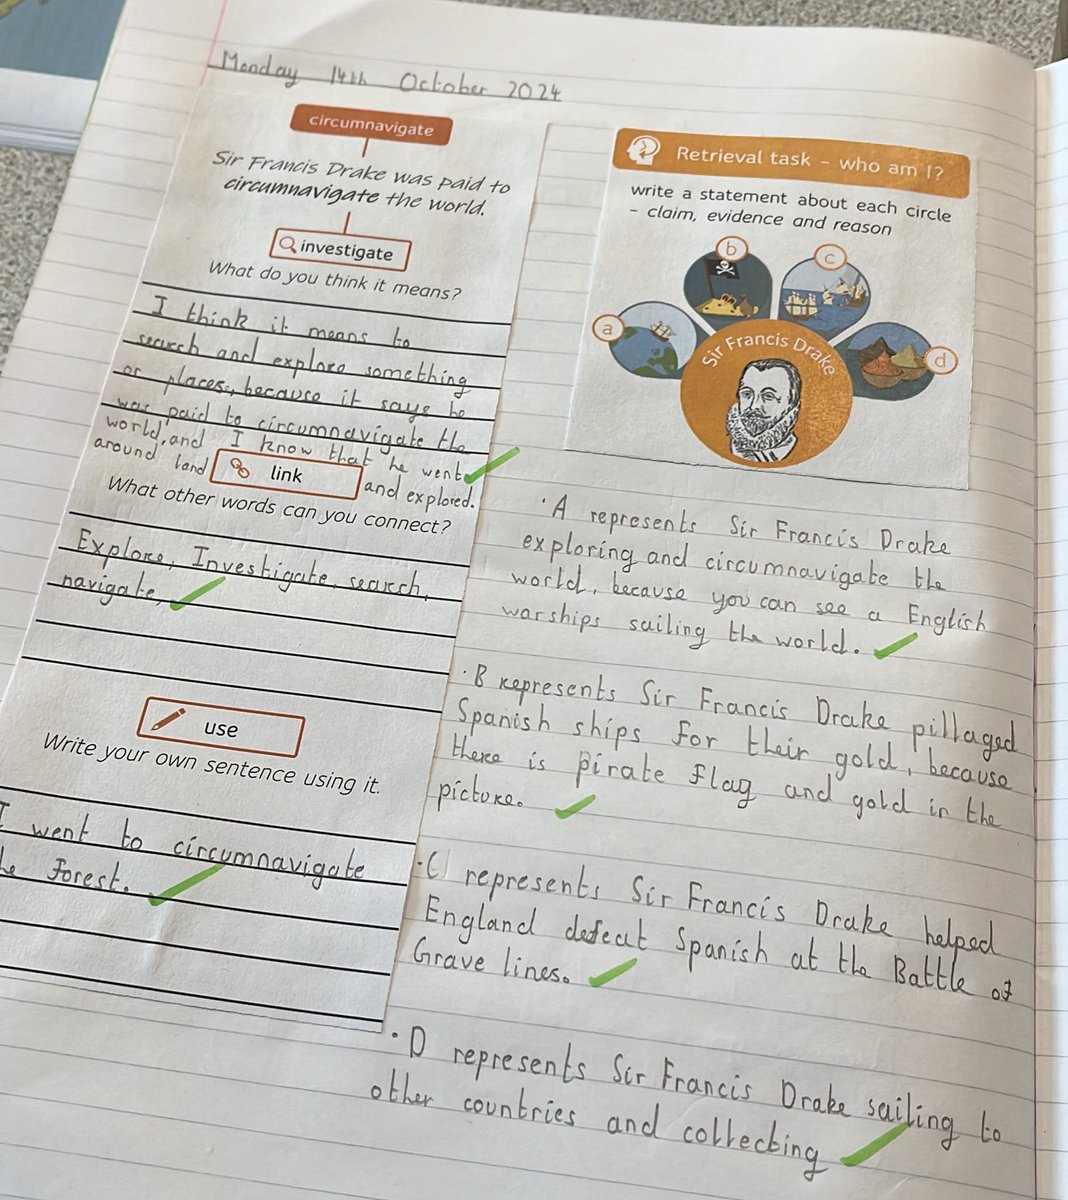 Monday 14th October 2024
circumnavigate
Sir Francis Drake was paid to
circumnavigate the world.
investigate
What do you think it means?
I think it means to
search and explore something
or places, because it says he
was paid to circumnavigate the
world, and I know that he went
around land and explored.
link
What other words can you connect?
Explore, Investigate, search,
navigate,
use
Write your own sentence using it.
I went to circumnavigate
he forest.
Retrieval task - who am I?
write a statement about each circle
- claim, evidence and reason
a
b
c
d
Sir Francis Drake
· A represents Sir Francis Drake
exploring and circumnavigate the
world, because you can see a English
warships sailing the world.
· B represents Sir Francis Drake pillaged
Spanish ships for their gold, because
there is pirate flag and gold in the
picture.
· C represents Sir Francis Drake helped
England defeat Spanish at the Battle of
Grave lines.
· D represents Sir Francis Drake sailing to
other countries and collecting